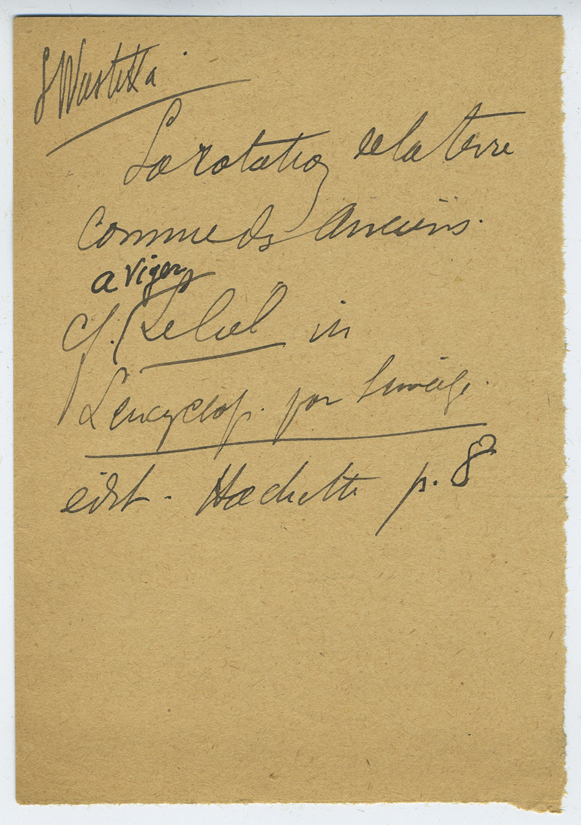 SWastika.
La rotation de la terre
connue des Anciens.
a Viger
cf. (Le Ciel in
L'encyclop. par l'image.
édit. Hachette p. 8